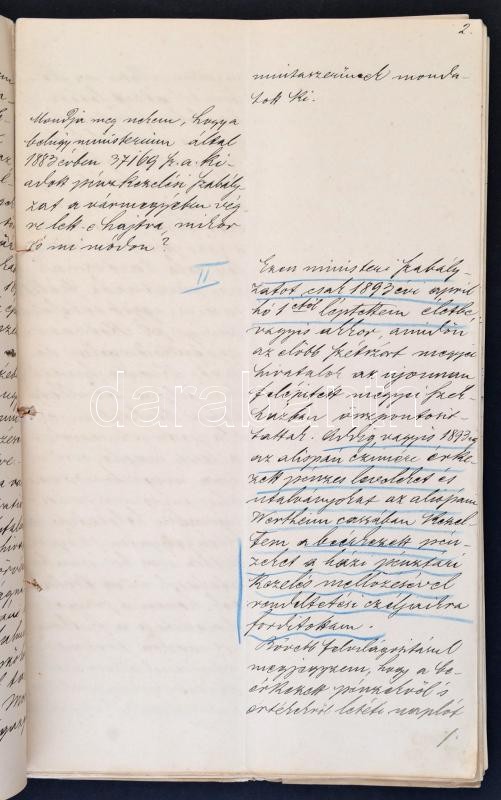 2.
mintaszerűnek monda-
tott ki.
Mondja meg nekem, hogy a
belügyministerium által
1883 évben 37169 sz. a. ki-
adott pénzkezelési szabály-
zat a vármegyében vég-
re lett-e hajtva, mikor
és mi módon?
II
Ezen ministeri szabály-
zatot csak 1893 évi april
hó 1től léptettem életbe,
vagyis akkor, amidőn
az előbb szétszórt megyei
hivatalok az ujonnan
felépitett megyei szék-
házban összpontosit-
tattak. Addig vagyis 1893ig
az alispán czimére érke-
zett pénzes leveleket és
utalványokat az alispáni
Wertheim cassában kezel-
tem a beérkezett pén-
zeket a házi pénztári
kezelés mellőzésével
rendeltetési czéljaikra
forditottam.
Bővebb felvilágositásul
megjegyzem, hogy a be-
érkezett pénzekről s
értékekről letéti naplót
darabanth